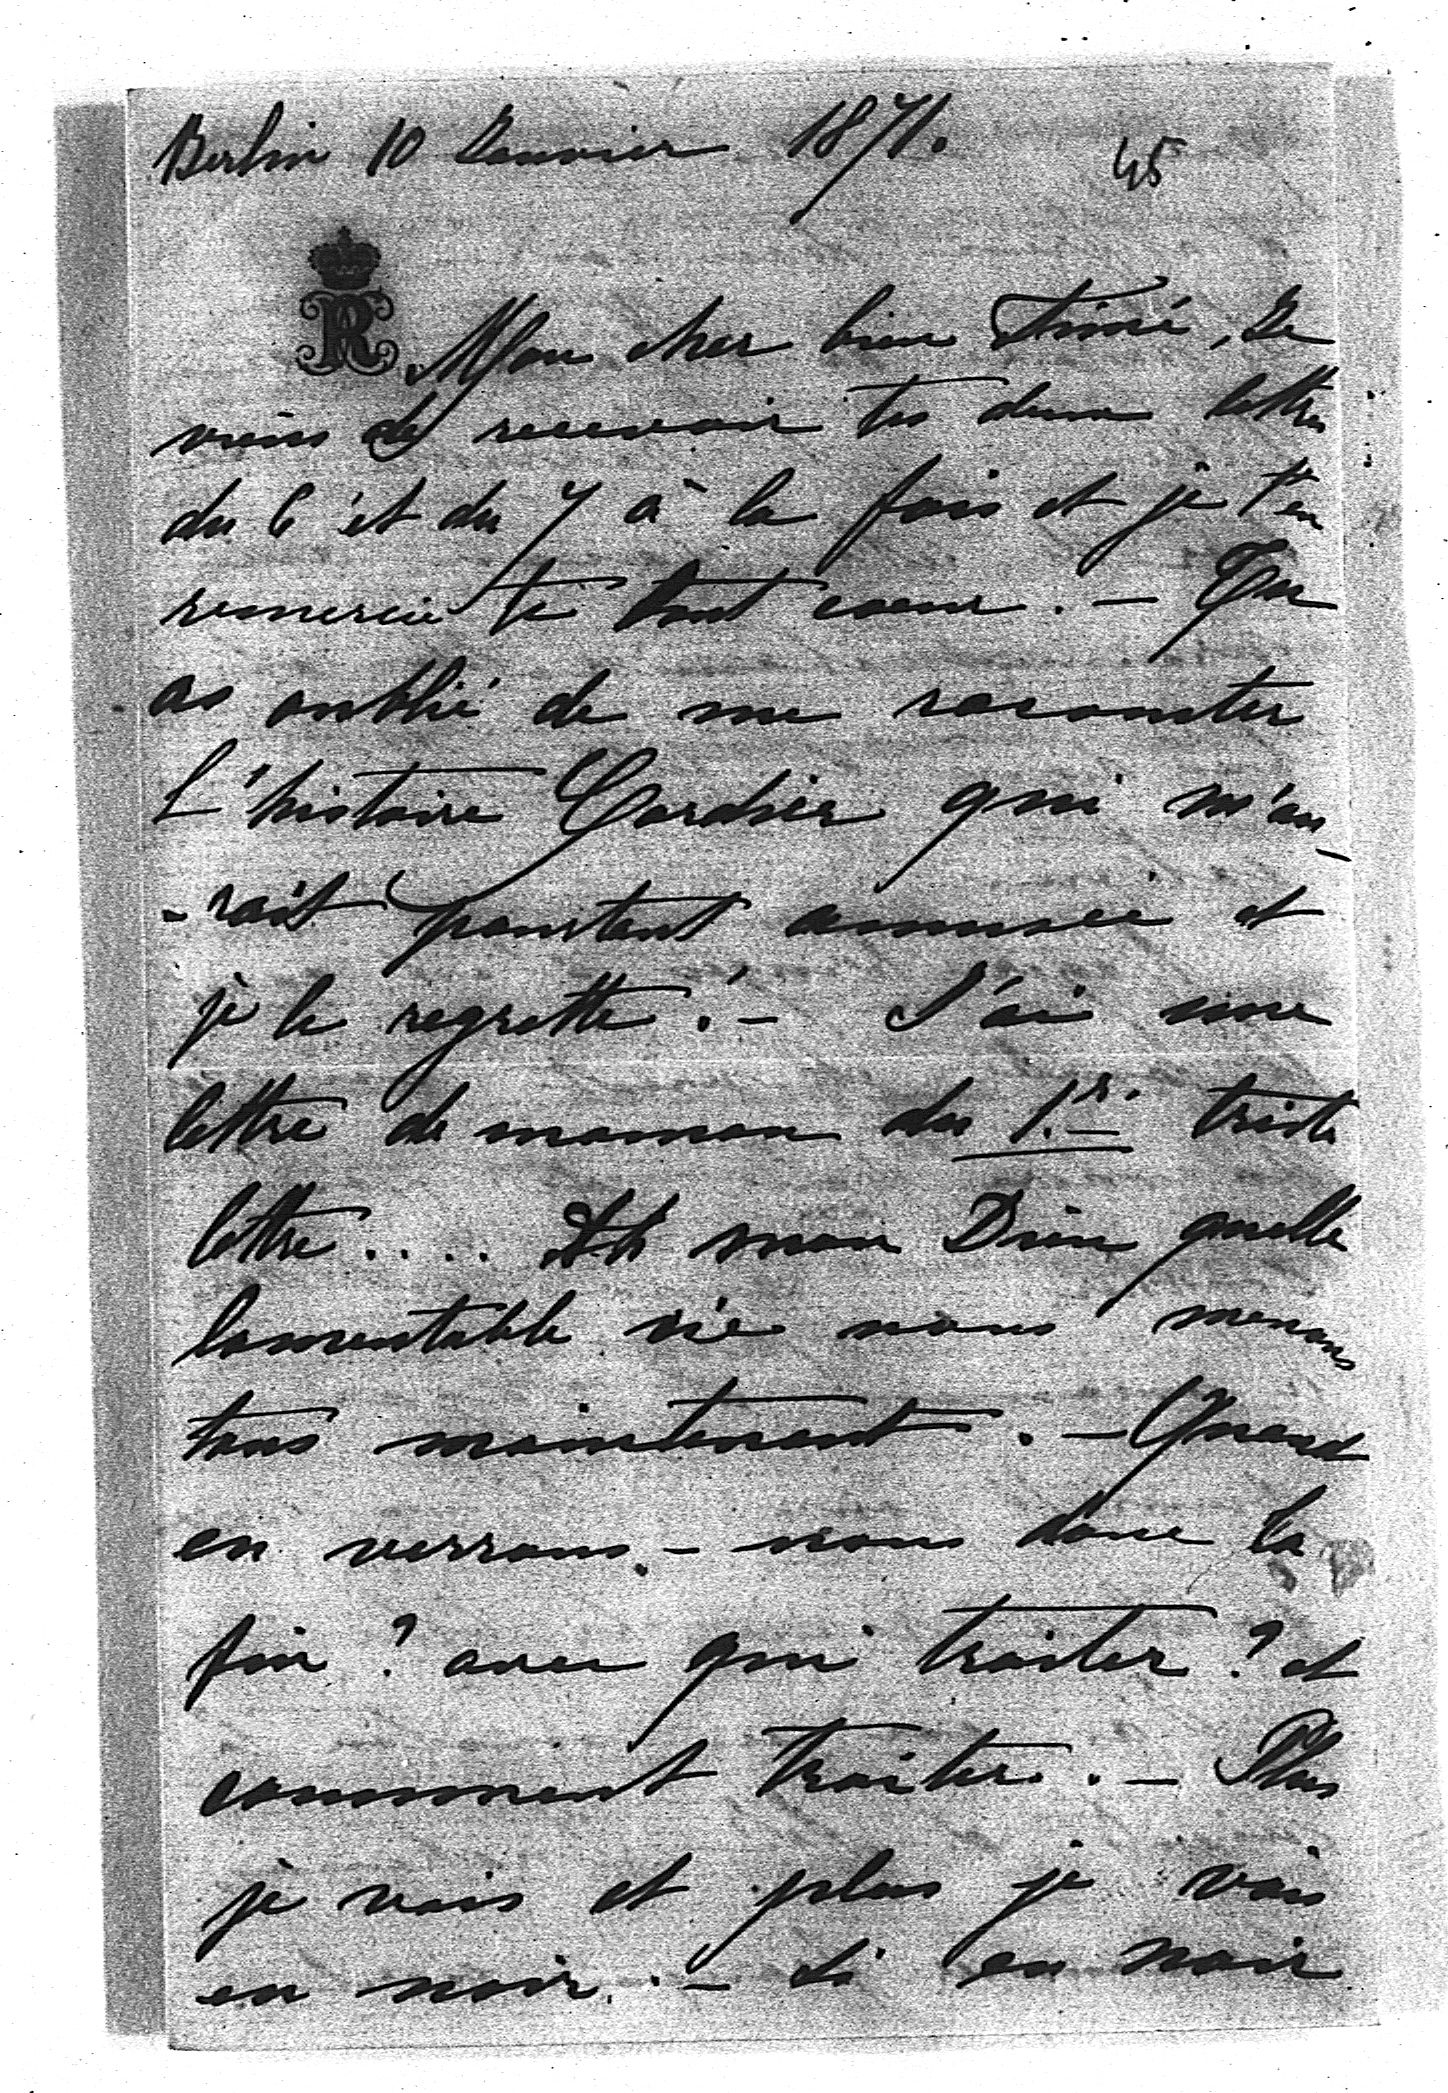 Berlin 10 Janvier 1871.
45
R
Mon cher bien Aimé, Je
viens de recevoir tes deux lettres
du 6 et du 7 à la fois et je t'en
remercie de tout coeur. — Tu
as oublié de me raconter
L'histoire Cordier qui m'au-
-rait pourtant amusée et
je le regrette! — J'ai une
lettre de maman du 1er triste
lettre.... Ah mon Dieu quelle
lamentable vie nous menons
tous maintenant. — Quand
en verrons-nous donc la
fin? avec qui traiter? et
comment traiter. — Plus
je vais et plus je vois
en noir. — Si en noir